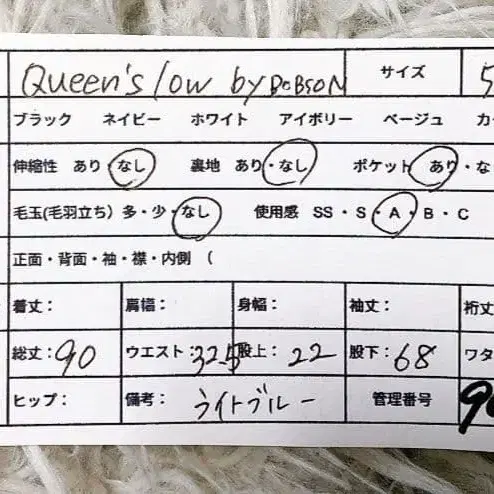 Queen's low by DOBSON サイズ 5
ブラック ネイビー ホワイト アイボリー ベージュ カ
伸縮性 あり・なし 裏地 あり・なし ポケット あり・な
毛玉(毛羽立ち) 多・少・なし 使用感 SS・S・A・B・C
正面・背面・袖・襟・内側 (
着丈: 肩幅: 身幅: 袖丈: 裄丈
総丈:90 ウエスト:32.5 股上:22 股下:68 ワタ
ヒップ: 備考: ライトブルー 管理番号 9